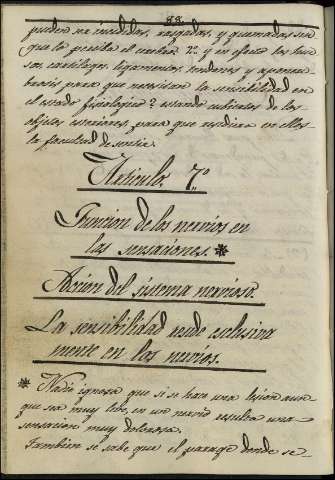 88.
pueden ser incindidos, rasgados, y quemados sin
que lo perciba el animal. Y en efecto los hue
sos cartilagos, ligamentos, tendones y aponeu
brosis para que necesitan la sensibilidad en
el estado fisiologico? estando cubiertos de los
objetos exteriores, para que residira en ellos
la facultad de sentir.
Articulo. 7.º
Funcion de los nervios en
las sensaciones. *
Accion del sistema nervioso.
La sensibilidad reside esclusiva
mente en los nervios.
* Nadie ignora que si se hace una lesion aun
que sea muy leve, en un nervio resulta una
sensacion muy dolorosa.
Tambien se sabe que el parage donde se